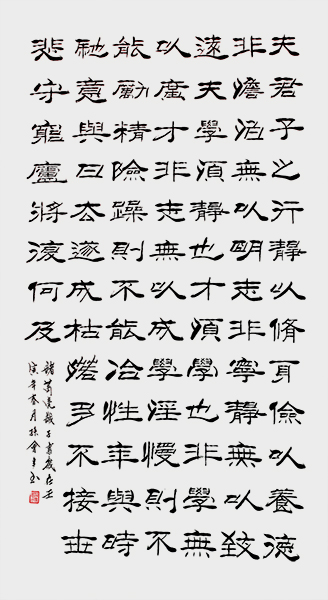 夫君子之行靜以脩身儉以養德
非澹泊無以明志非寧靜無以致
遠夫學須靜也才須學也非學無
以廣才非志無以成學淫慢則不
能勵精險躁則不能冶性年與時
馳意與日去遂成枯落多不接世
悲守窮廬將復何及
諸葛亮誡子書歲在壬
寅年春月孫會